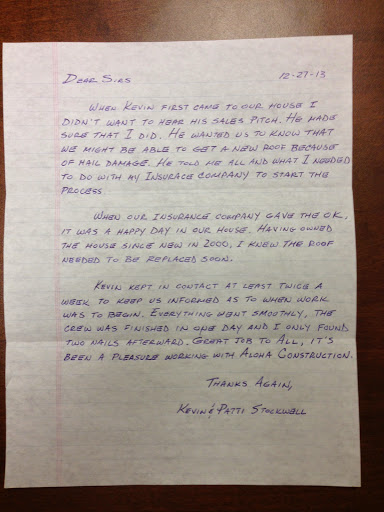 Dear Sirs 12-27-13
When Kevin first came to our house I
didn't want to hear his sales pitch. He made
sure that I did. He wanted us to know that
we might be able to get a new roof because
of hail damage. He told me all and what I needed
to do with my insurace company to start the
process
When our insurance company gave the OK,
it was a happy day in our house. Having owned
the house since new in 2000, I knew the roof
needed to be replaced soon.
Kevin kept in contact at least twice a
week to keep us informed as to when work
was to begin. Everything went smoothly, the
crew was finished in one day and I only found
two nails afterward. Great job to all, it's
been a pleasure working with Aloha Construction.
Thanks Again,
Kevin & Patti Stockwell